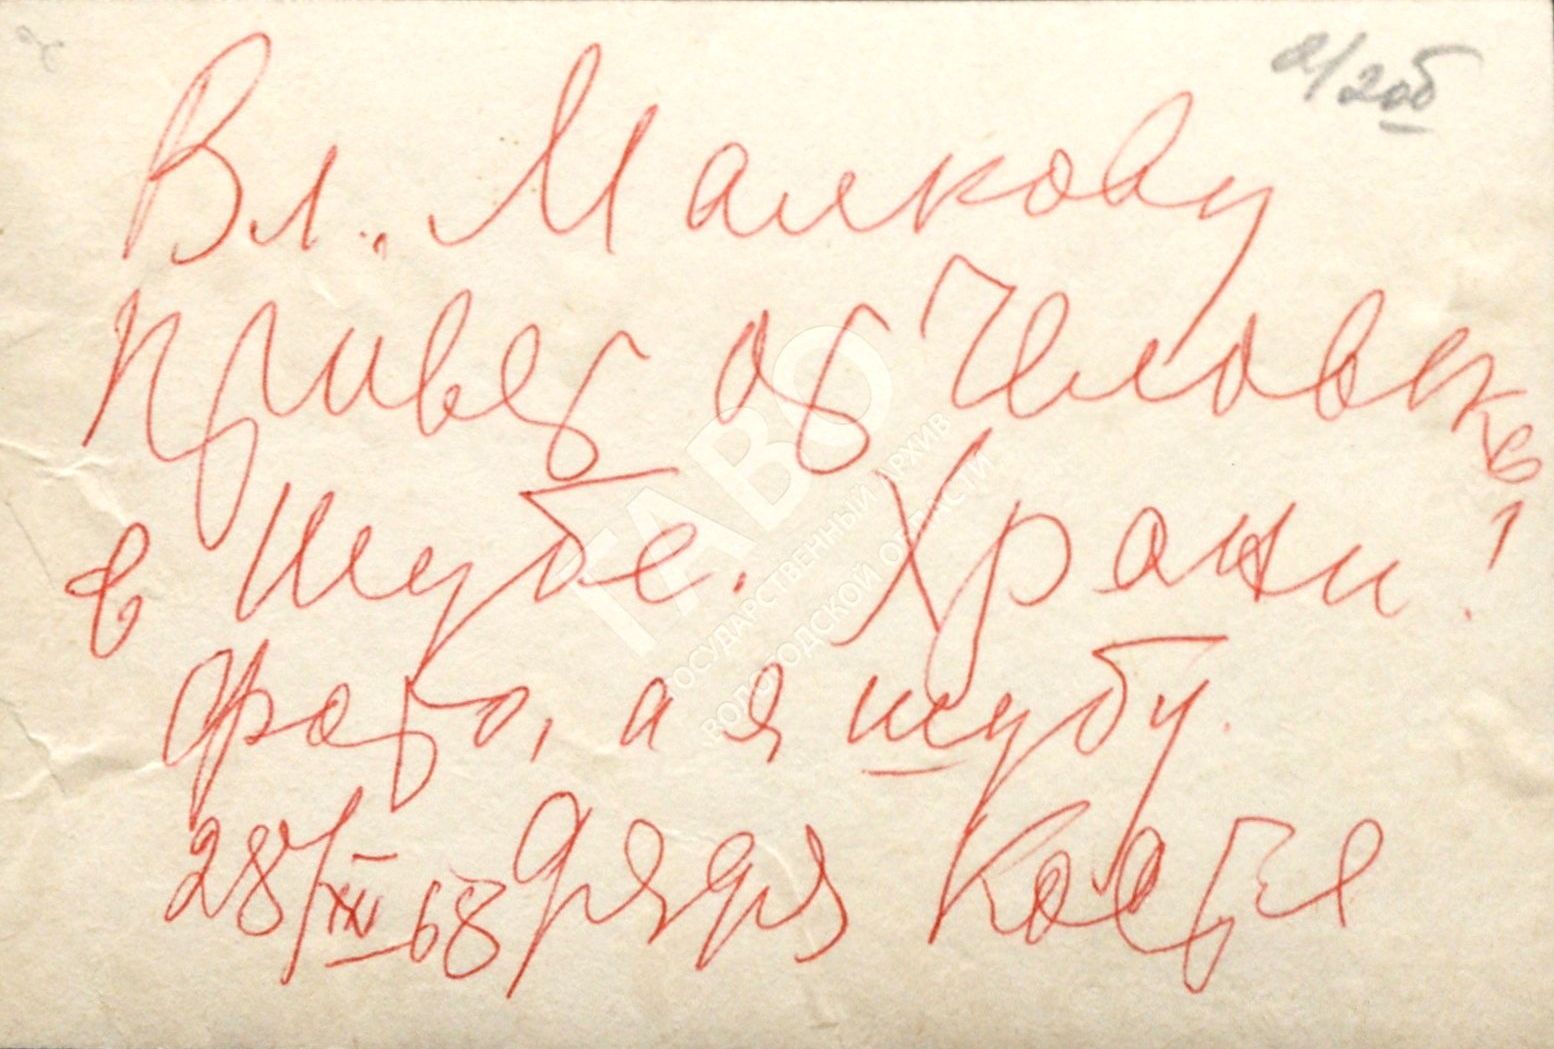 2/2об
Вл. Малкову
Привет от Человека
в шубе. Храни!
фото, а я шубу.
28/XII 68 Дядя Костя
ГАВО
ГОСУДАРСТВЕННЫЙ АРХИВ
ВОЛОГОДСКОЙ ОБЛАСТИ